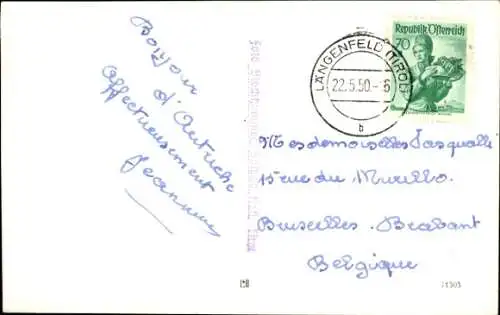 Bonjour
d'Autriche
affectueusement
Jeannine
Republik Österreich
70
LÄNGENFELD (TIROL)
22.5.50.-6
b
Mesdemoiselles Pasqualli
15 rue du Murillo.
Bruxelles. Brabant
Belgique